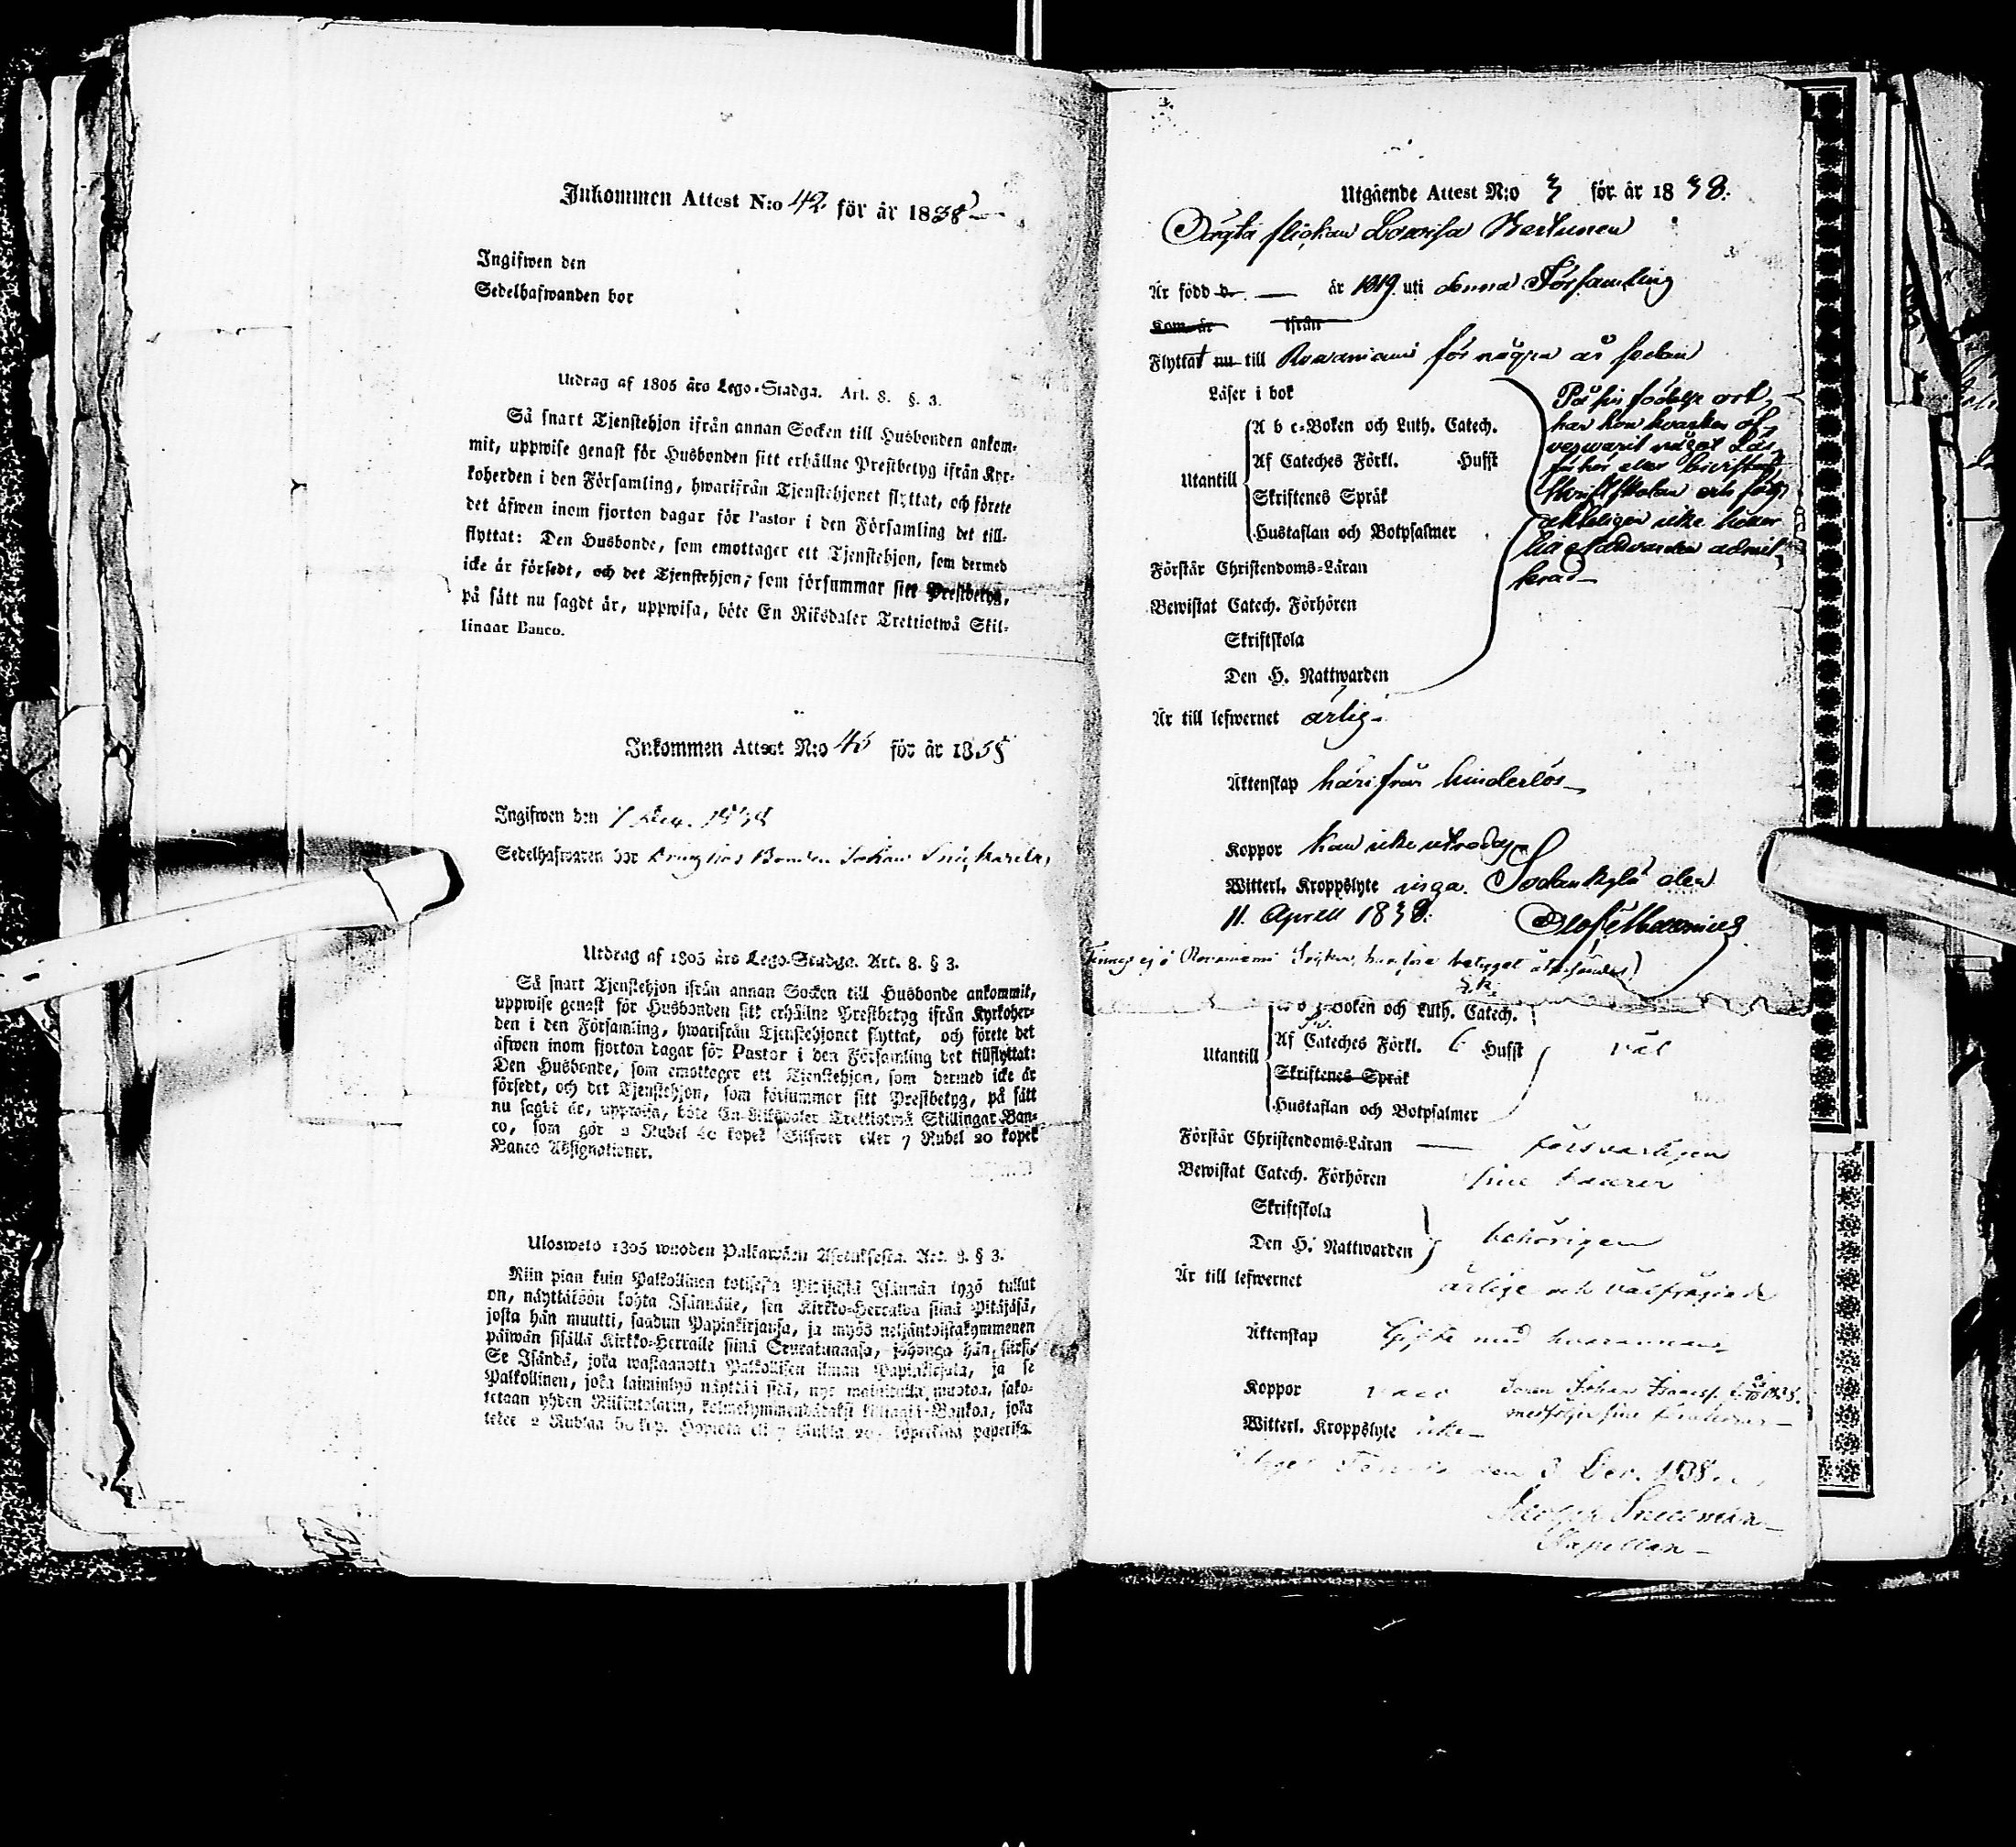 Inkommen Attest N:o 42 för år 1838
Ingifwen den
Sedelhafwanden bor
Utdrag af 1805 års Lego-Stadga. Art. 8. §. 3.
Så snart Tjenstehjon ifrån annan Socken till Husbonden ankom-
mit, uppwise genast för Husbonden sitt erhållne Prestbetyg ifrån Kyr-
koherden i den Församling, hwarifrån Tjenstehjonet flyttat, och förete
det äfwen inom fjorton dagar för Pastor i den Församling det till-
flyttat: Den Husbonde, som emottager ett Tjenstehjon, som dermed
icke är försedt, och det Tjenstehjon, som försummar sitt Prestbetyg,
på sätt nu sagdt är, uppwisa, böte En Riksdaler Trettiotwå Skil-
lingar Banco.
Inkommen Attest N:o 45 för år 1838
Ingifwen den 7 Dec. 1838
Sedelhafwaren bor Bonden Johan
Utdrag af 1805 års Lego-Stadga. Art. 8. § 3.
Så snart Tjenstehjon ifrån annan Socken till Husbonde ankommit,
uppwise genast för Husbonden sitt erhållne Prestbetyg ifrån Kyrkoher-
den i den Församling, hwarifrån Tjenstehjonet flyttat, och förete det
äfwen inom fjorton dagar för Pastor i den Församling det tillflyttat:
Den Husbonde, som emottager ett Tjenstehjon, som dermed icke är
försedt, och det Tjenstehjon, som försummar sitt Prestbetyg, på sätt
nu sagdt är, uppwisa, böte En Riksdaler Trettiotwå Skillingar Ban-
co, som gör 2 Rubel 60 kopek Silfwer eller 7 Rubel 20 kopek
Banco Assignationer.
Ulosweto 1805 wuoden Palkawäen Asetuksesta. Art. 8. § 3.
Niin pian kuin Palkollinen toisesta Pitäjästä Isännän tygö tullut
on, näyttäköön kohta Isännälle, sen Kirkko-Herralda siinä Pitäjäsä,
josta hän muutti, saadun Papinkirjansa, ja myös neljäntoistakymmenen
päiwän sisällä Kirkko-Herralle siinä Seurakunnasa, johonga hän siirsi.
Se Isändä, joka wastaanotta Palkollisen ilman Papinkirjata, ja se
Palkollinen, joka laiminlyö näyttää sitä, nyt mainitulla muotoa, sako-
tetaan yhden Riikintalarin, kolmekymmendäkaksi killingii Bankoa, joka
tekee 2 Ruplaa 60 kop. Hopiata eli 7 Rupla 20 kopeekkaa paperisa.
Utgående Attest N:o 3 för år 1838.
flickan Lovisa
Är född d. — år 1819 uti denna Församling
Kom år ifrån
Flyttat nu till Rovaniemi för några år sedan
Läser i bok
A b c-Boken och Luth. Catech.
Af Cateches Förkl. Hufst
Utantill
Skriftenes Språk
Hustaflan och Botpsalmer
På sin födelse ort
har hon hvarken öf-
vervarit något Läs-
förhör eller bivistat
Skriftskolan och följ-
akteligen icke heller
Nattvarden admit-
terad—
Förstår Christendoms-Läran
Bewistat Catech. Förhören
Skriftskola
Den H. Nattwarden
Är till lefwernet ärlig-
Äktenskap härifrån hinderlös-
Koppor kan icke utredas
Witterl. Kroppslyte inga. Sodankylä den
11. Aprill 1838.
Finnes ej i Rovaniemi Socken, hvarföre betyget återsändes!
A b c-Boken och Luth. Catech.
Af Cateches Förkl. 6 Hufst väl
Utantill
Skriftenes Språk
Hustaflan och Botpsalmer
Förstår Christendoms-Läran — försvarligen
Bewistat Catech. Förhören sine
Skriftskola
Den H. Nattwarden behörigen
Är till lefwernet ärlige och välfrägdade
Äktenskap Gifte med hvarannan
Koppor Sonen Johan
medföljer sine föräldrar-
Witterl. Kroppslyte icke-
den 3 Dec. 1838.
Snellman
Capellan-